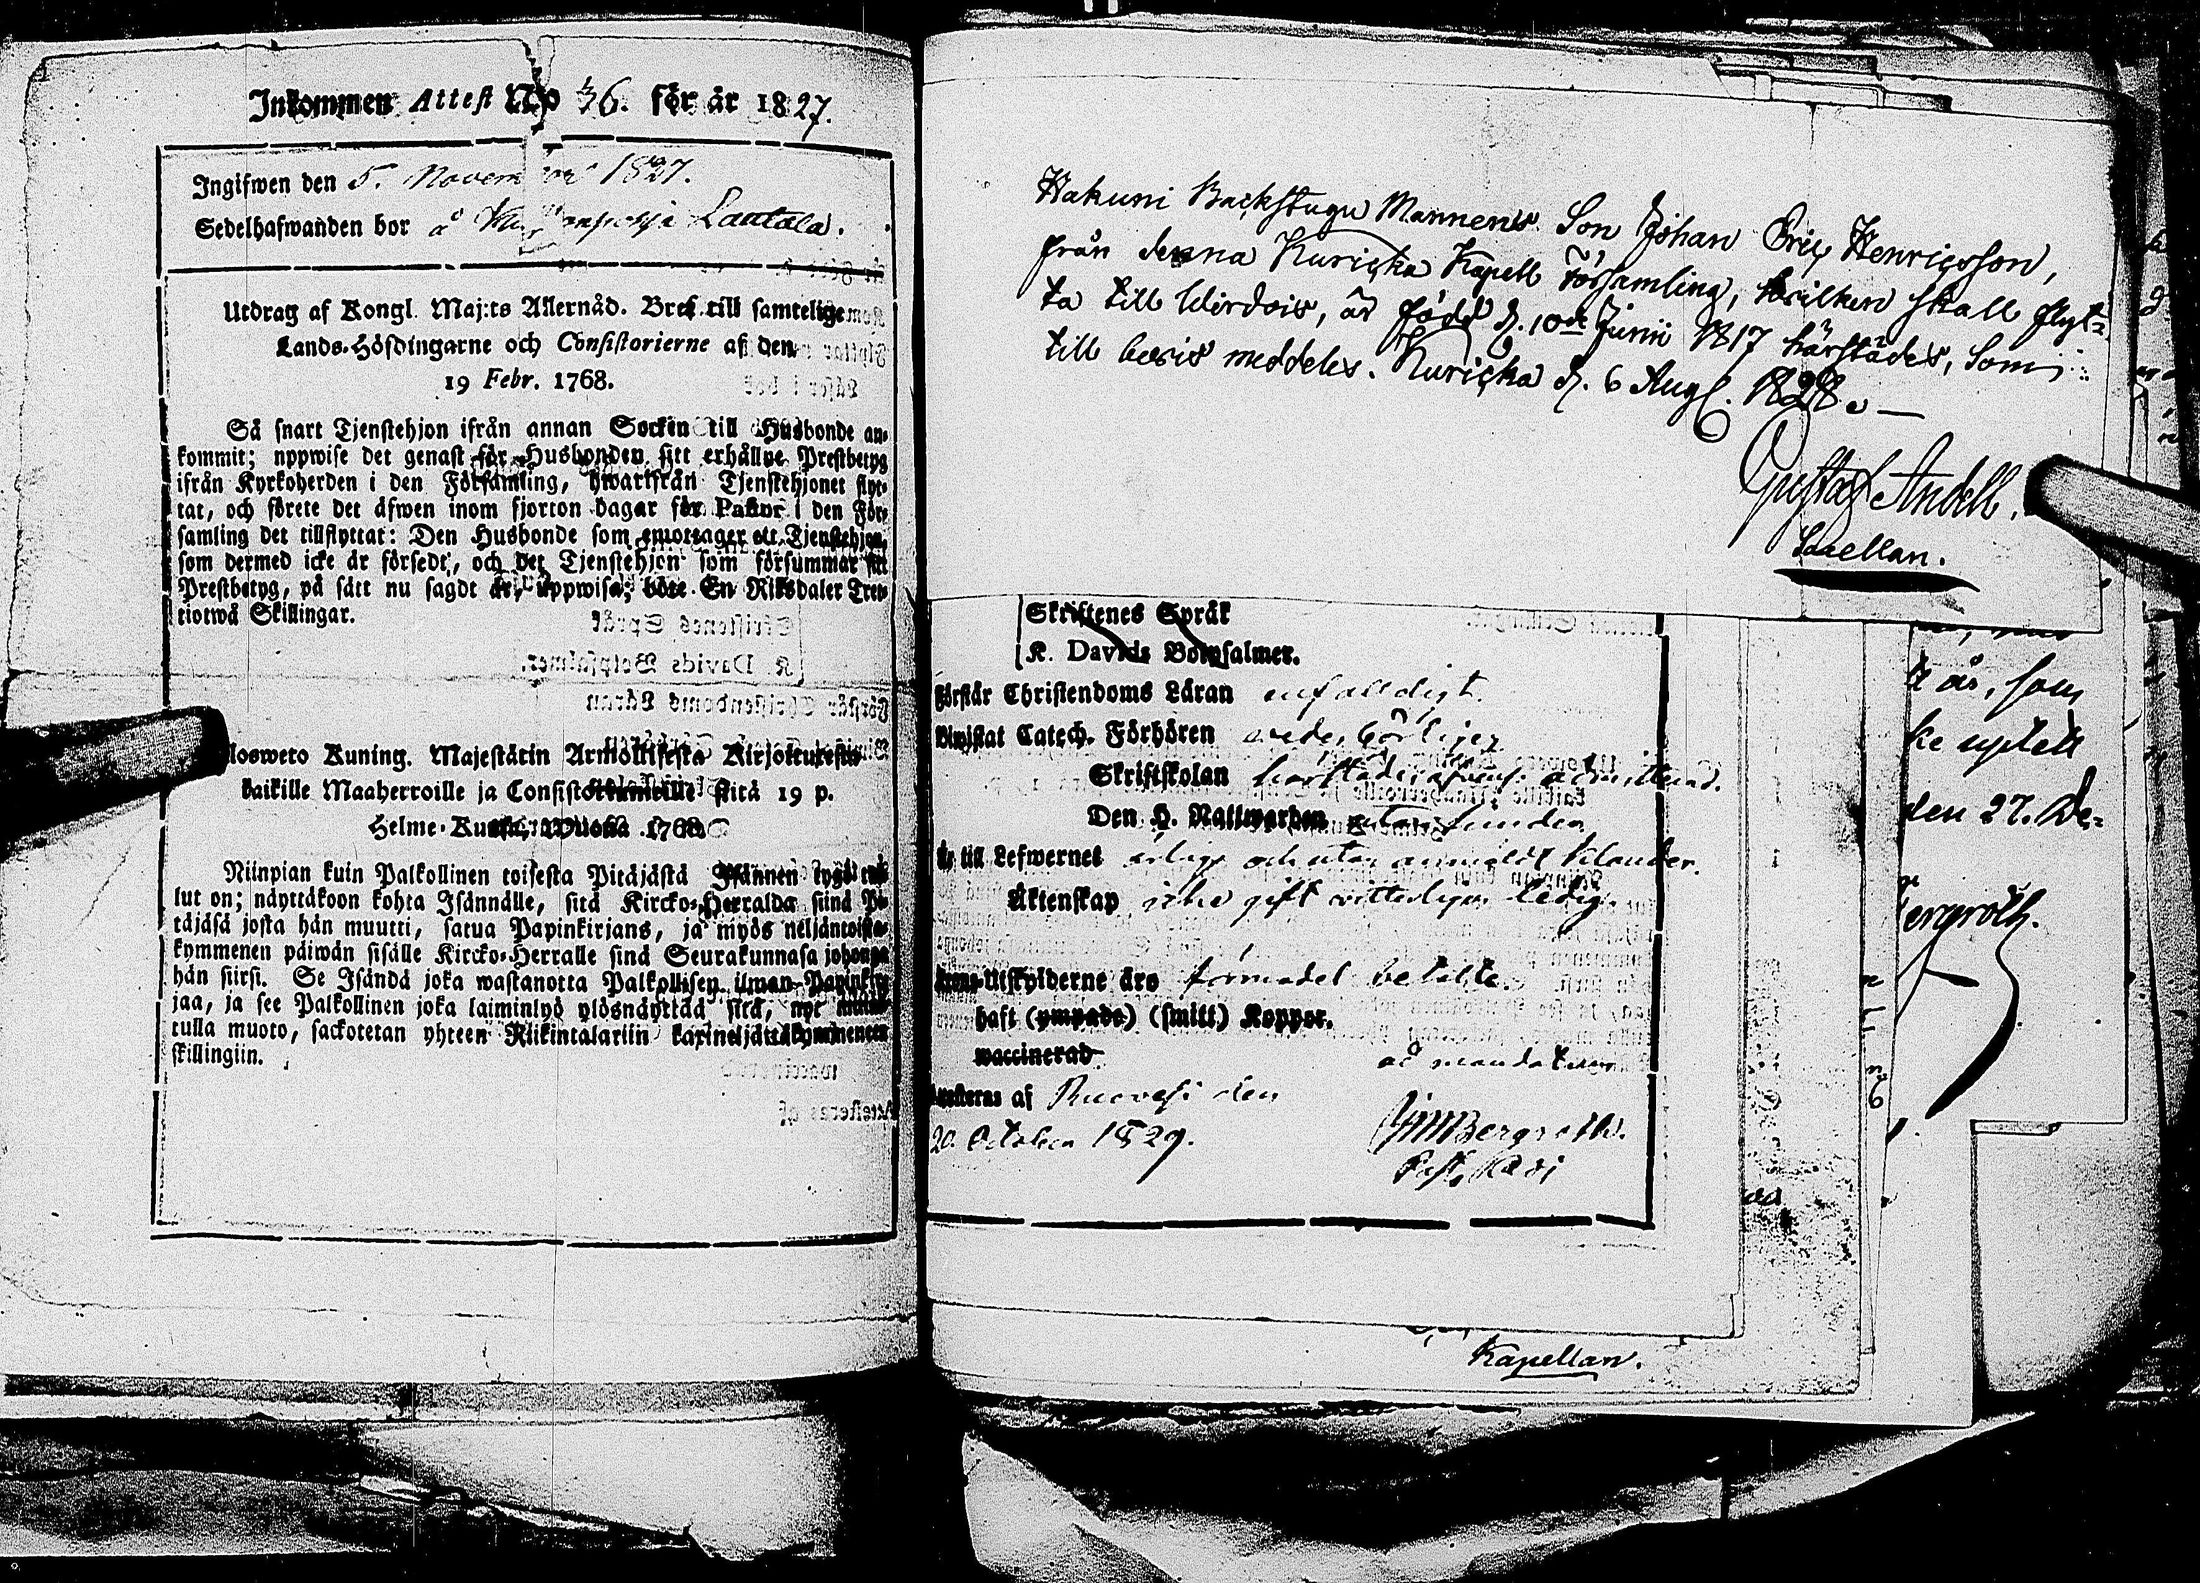 Inkommen Attest No 36. för år 1827.
Ingifwen den 5. November 1827.
Sedelhafwanden bor å Lautala.
Utdrag af Kongl. Maj:ts Allernåd. Bref till samtelige
Lands-Höfdingarne och Consistorierne af den
19 Febr. 1768.
Så snart Tjenstehjon ifrån annan Socken till Husbonde an-
kommit; uppwise det genast för Husbonden sitt erhållne Prestbetyg
ifrån Kyrkoherden i den Församling, hwarifrån Tjenstehjonet flyt-
tat, och förete det äfwen inom fjorton dagar för Pastor i den För-
samling det tillflyttat: Den Husbonde som emottager ett Tjenstehjon,
som dermed icke är försedt, och det Tjenstehjon som försummar sitt
Prestbetyg, på sätt nu sagdt är, uppwisa; böte En Riksdaler Tret-
tiotwå Skillingar.
Ulosweto Kuning. Majestätin Armollisesta Kirjoituxesta
kaikille Maaherroille ja Consistoriumeille sitä 19 p.
Helme-Kuusa, Wuonna 1768.
Niinpian kuin Palkollinen toisesta Pitäjästä Isännen tygö tul-
lut on; näyttäkoon kohta Isännälle, sitä Kircko-Herralda siinä Pi-
täjäsä josta hän muutti, saatua Papinkirjans, ja myös neljäntoista-
kymmenen päiwän sisälle Kircko-Herralle sinä Seurakunnasa johonga
hän siirsi. Se Isändä joka wastanotta Palkollisen ilman Papinkir-
jaa, ja see Palkollinen joka laiminlyö ylösnäyttää sitä, nyt
tulla muoto, sackotetan yhteen Riikintalariin kaxineljättäkymmeneen
skillingiin.
Hakuni Backstugu Mannens Son Johan Eric Henricsson,
från denna Kuricka Kapell Församling, hvilken skall flyt-
ta till Wirdois, är född d. 10de Junii 1817 härstädes, Som
till bevis meddeles. Kuricka d. 6 Aug. 1828.
Gustaf Andell.
Capellan.
Skriftenes Språk
K. Davids Botpsalmer.
Förstår Christendoms Läran enfaldigt
Biwistat Catech. Förhören vederbörligen
Skriftskolan härstädes admitterad.
Den H. Nattwarden
Är till Lefwernet ärlig och utan anmäldt klander.
Äktenskap icke gift vitterligen ledig.
Utskylderne äro förmodel. betalte.
haft (ympade) (smitt) Koppor.
waccinerad
ad mandatum
Attesteras af Ruovesi den
20. October 1829.
Bergroth.
Kapellan.
är, som
uptett
den 27. De-
Bergroth.